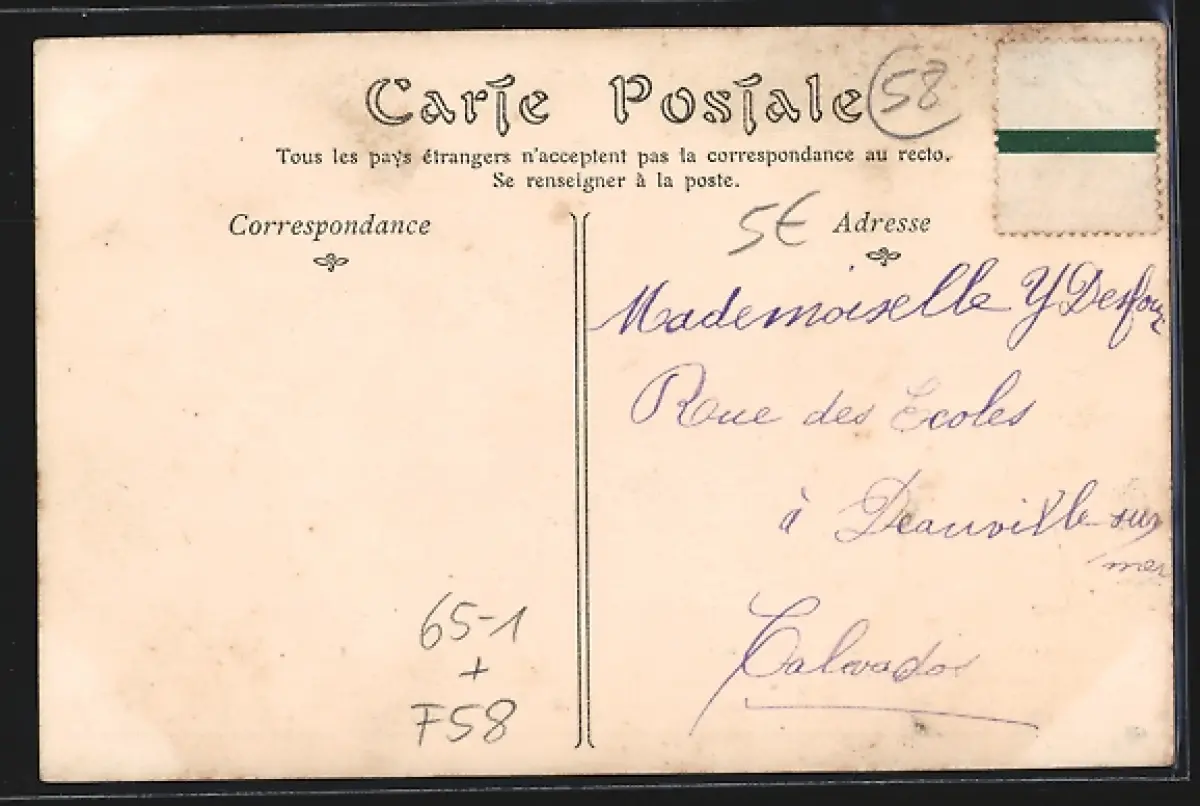 Carte Postale
58
Tous les pays étrangers n'acceptent pas la correspondance au recto.
Se renseigner à la poste.
Correspondance
5€ Adresse
Mademoiselle Y
Rue des Ecoles
à Deauville sur
mer
Calvados
65-1
+
F58